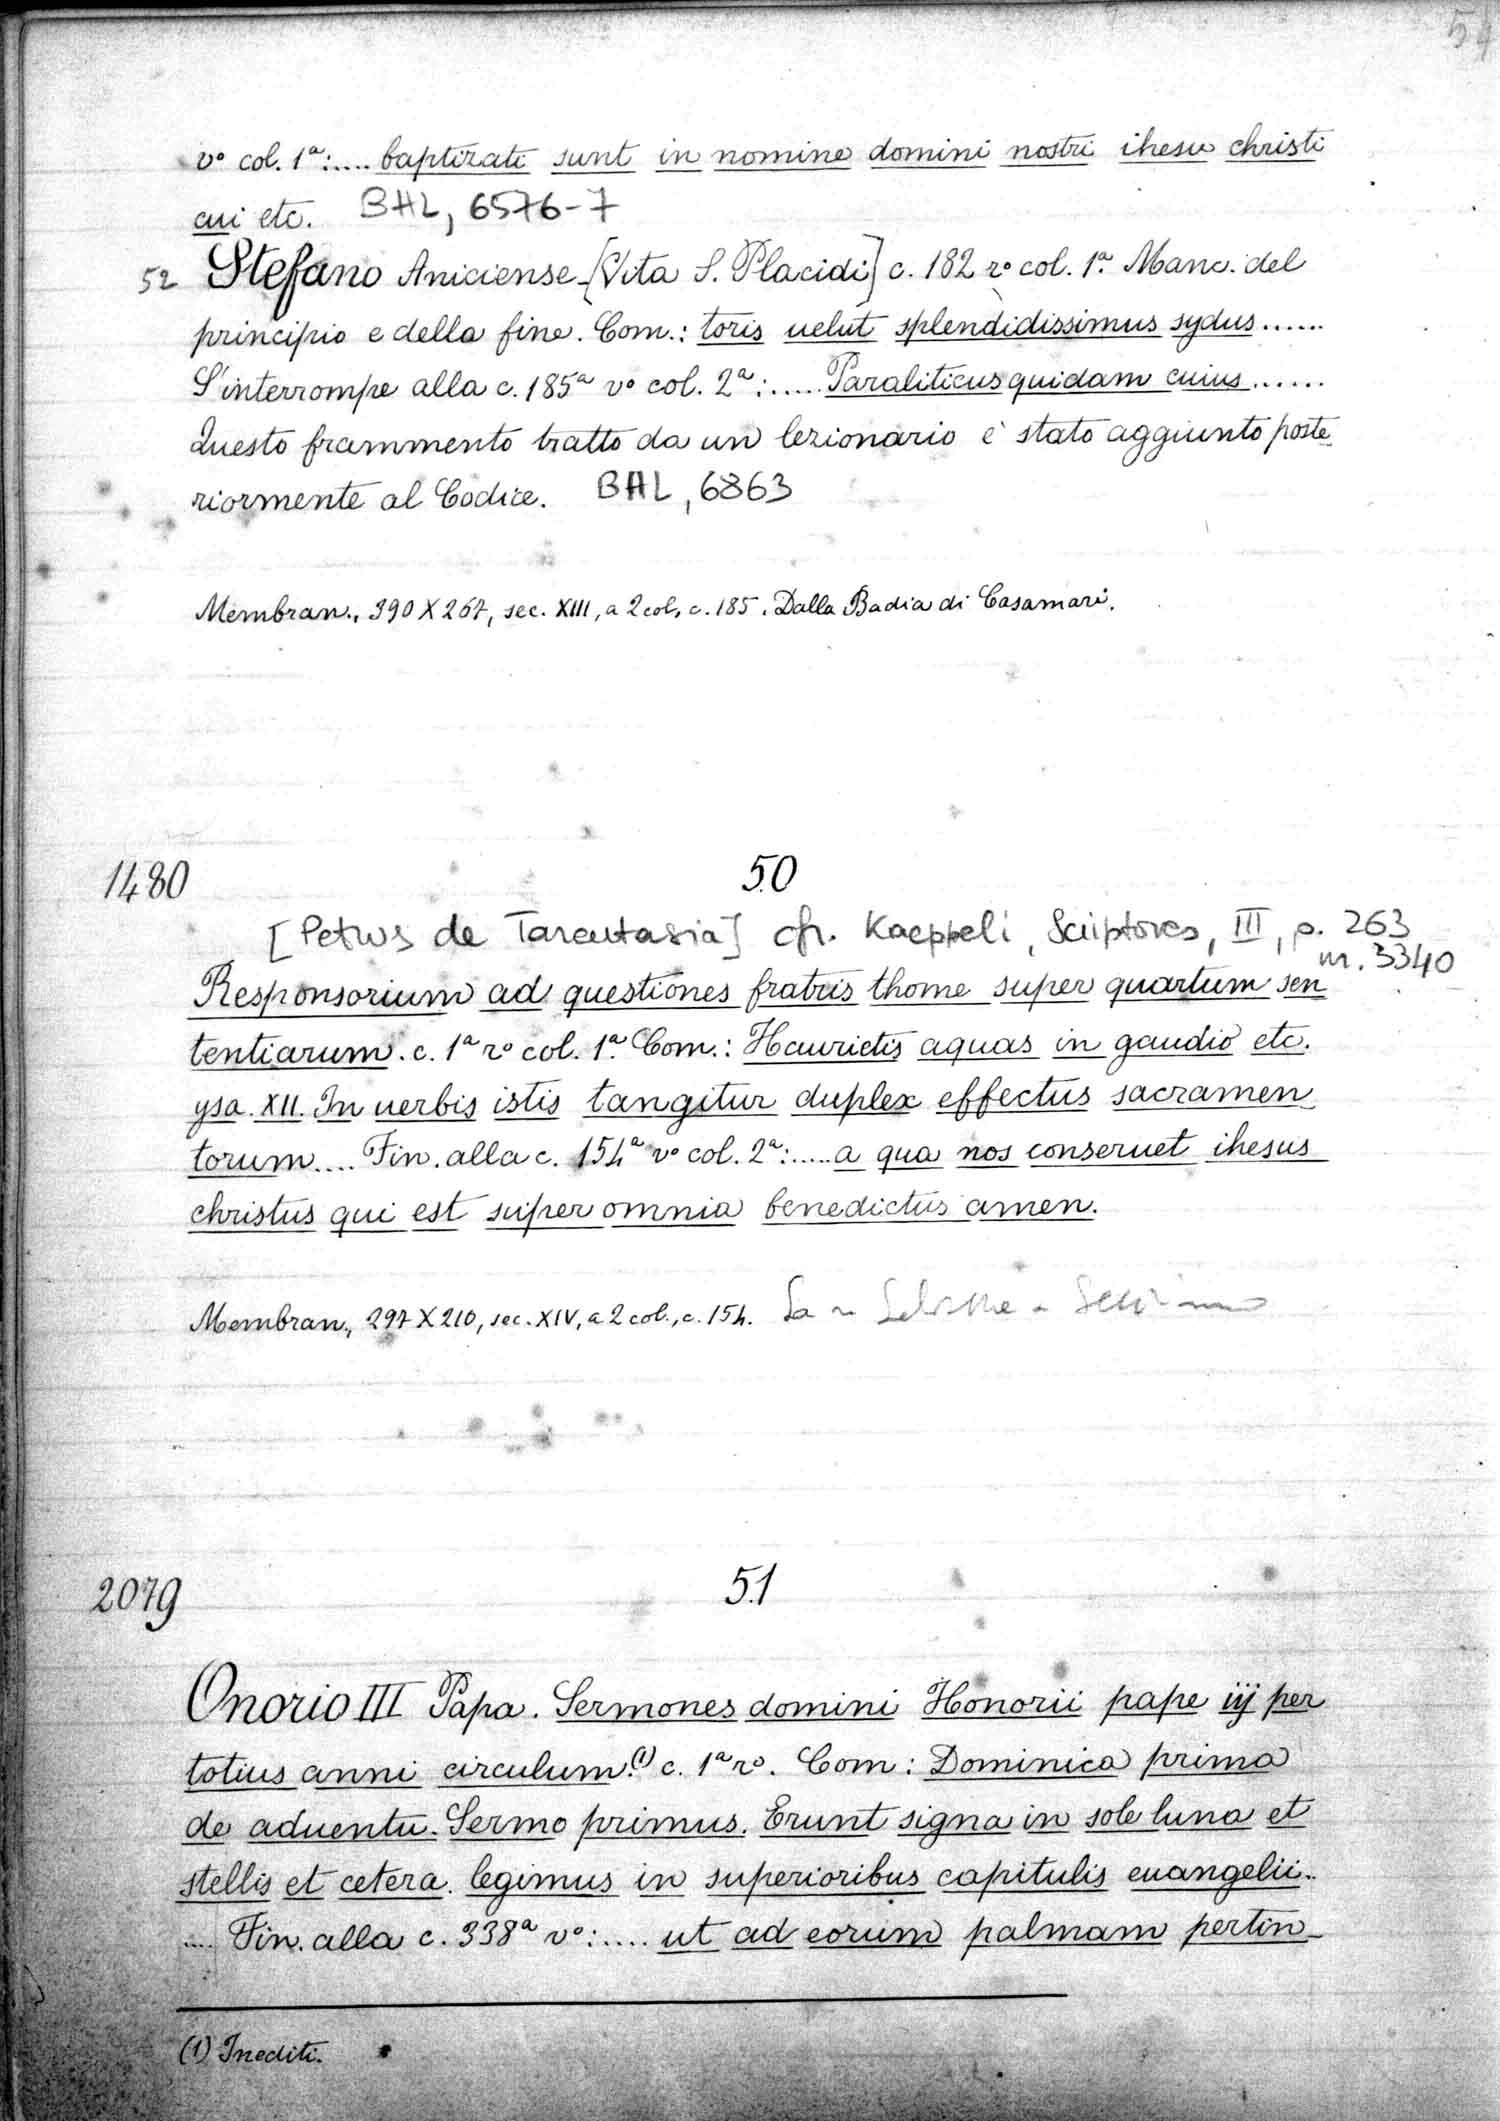 54
vº col. 1ª:.... baptizati sunt in nomine domini nostri ihesu christi
cui etc. BHL, 6576-7
52 Stefano Aniciense-[Vita S. Placidi] c. 182 rº col. 1ª. Manc. del
principio e della fine. Com.: toris uelut splendidissimus sydus......
S'interrompe alla c. 185ª vº col. 2ª:..... Paraliticus quidam cuius......
Questo frammento tratto da un lezionario è stato aggiunto poste
riormente al Codice. BHL, 6863
Membran., 390 X 267, sec. XIII, a 2 col., c. 185. Dalla Badia di Casamari.
1480 50
[Petrus de Tarentasia] cfr. Kaeppeli, Scriptores, III, p. 263
nr. 3340
Responsorium ad questiones fratris thome super quartum sen
tentiarum. c. 1ª rº col. 1ª. Com.: Haurietis aquas in gaudio etc.
ysa. XII. In uerbis istis tangitur duplex effectus sacramen
torum.... Fin. alla c. 154ª vº col. 2ª:..... a qua nos conseruet ihesus
christus qui est super omnia benedictus amen.
Membran., 297 X 210, sec. XIV, a 2 col., c. 154.
2079 51
Onorio III Papa. Sermones domini Honorii pape iij per
totius anni circulum.(1) c. 1ª rº. Com: Dominica prima
de aduentu. Sermo primus. Erunt signa in sole luna et
stellis et cetera. legimus in superioribus capitulis euangelii..
.... Fin. alla c. 338ª vº:.... ut ad eorum palmam pertin-
(1) Inediti.